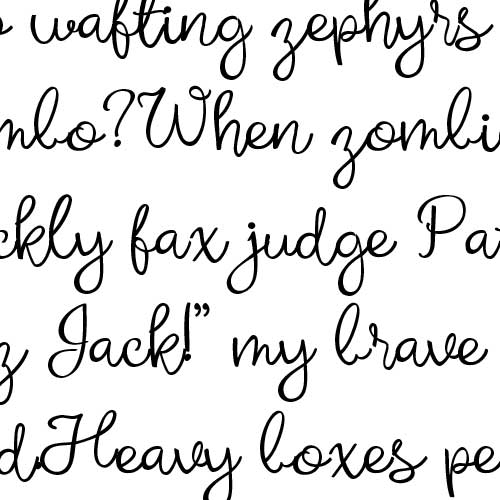 wafting zephyrs
mbo? When zombi
ckly fax judge Pat
z Jack!” my brave
d. Heavy boxes pe